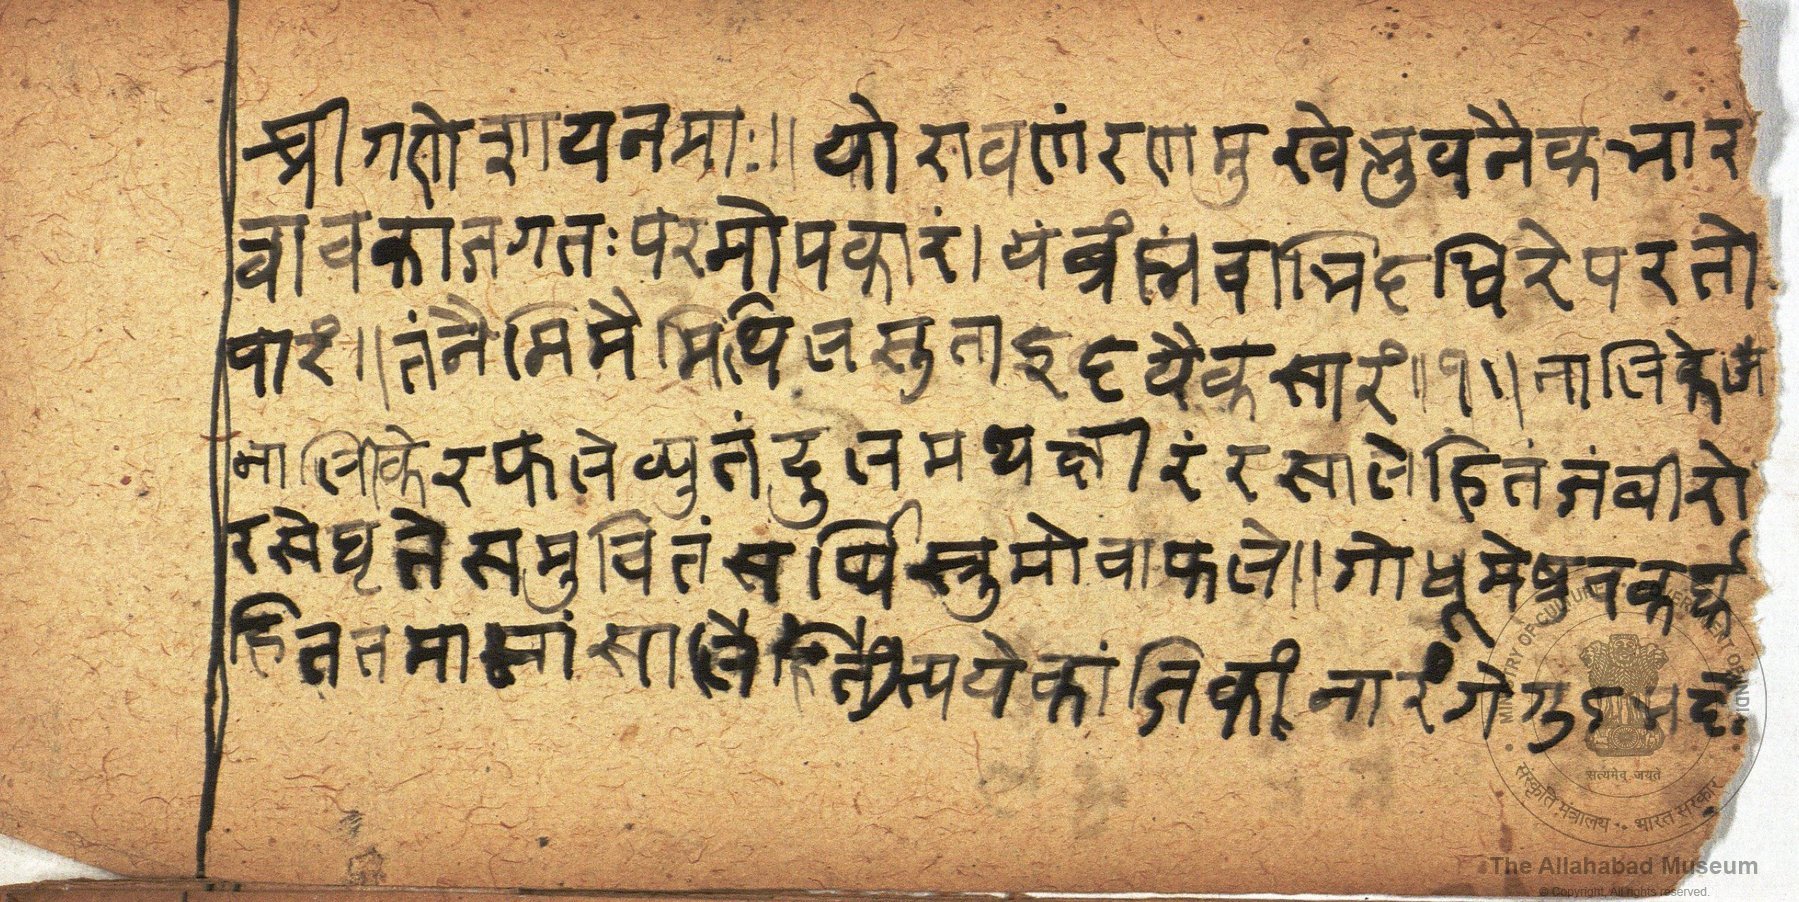 श्रीगणेशायनमाः॥ यो रावणंरणमुखेभुवनैकभारं
चावकाजगतःपरमोपकारं। यंब्रंह्मवाभिदधिरेपरतो
पारं॥तंनैमिमैमिथिलसुताह्रदयैकसारं॥१॥नालिके
नालिकेरफलेष्युतंदुलमथक्षीरंरसालेहितंजंबीरो
रसेघृतैसमुचितंसर्पिस्तुमोचाफले॥गोधूमेषुचक
हिततमामांसा नारंगेगु
सत्यमेव जयते
MINISTRY OF CULTURE GOVERNMENT OF INDIA
संस्कृति मंत्रालय भारत सरकार
The Allahabad Museum
© Copyright, All rights reserved.